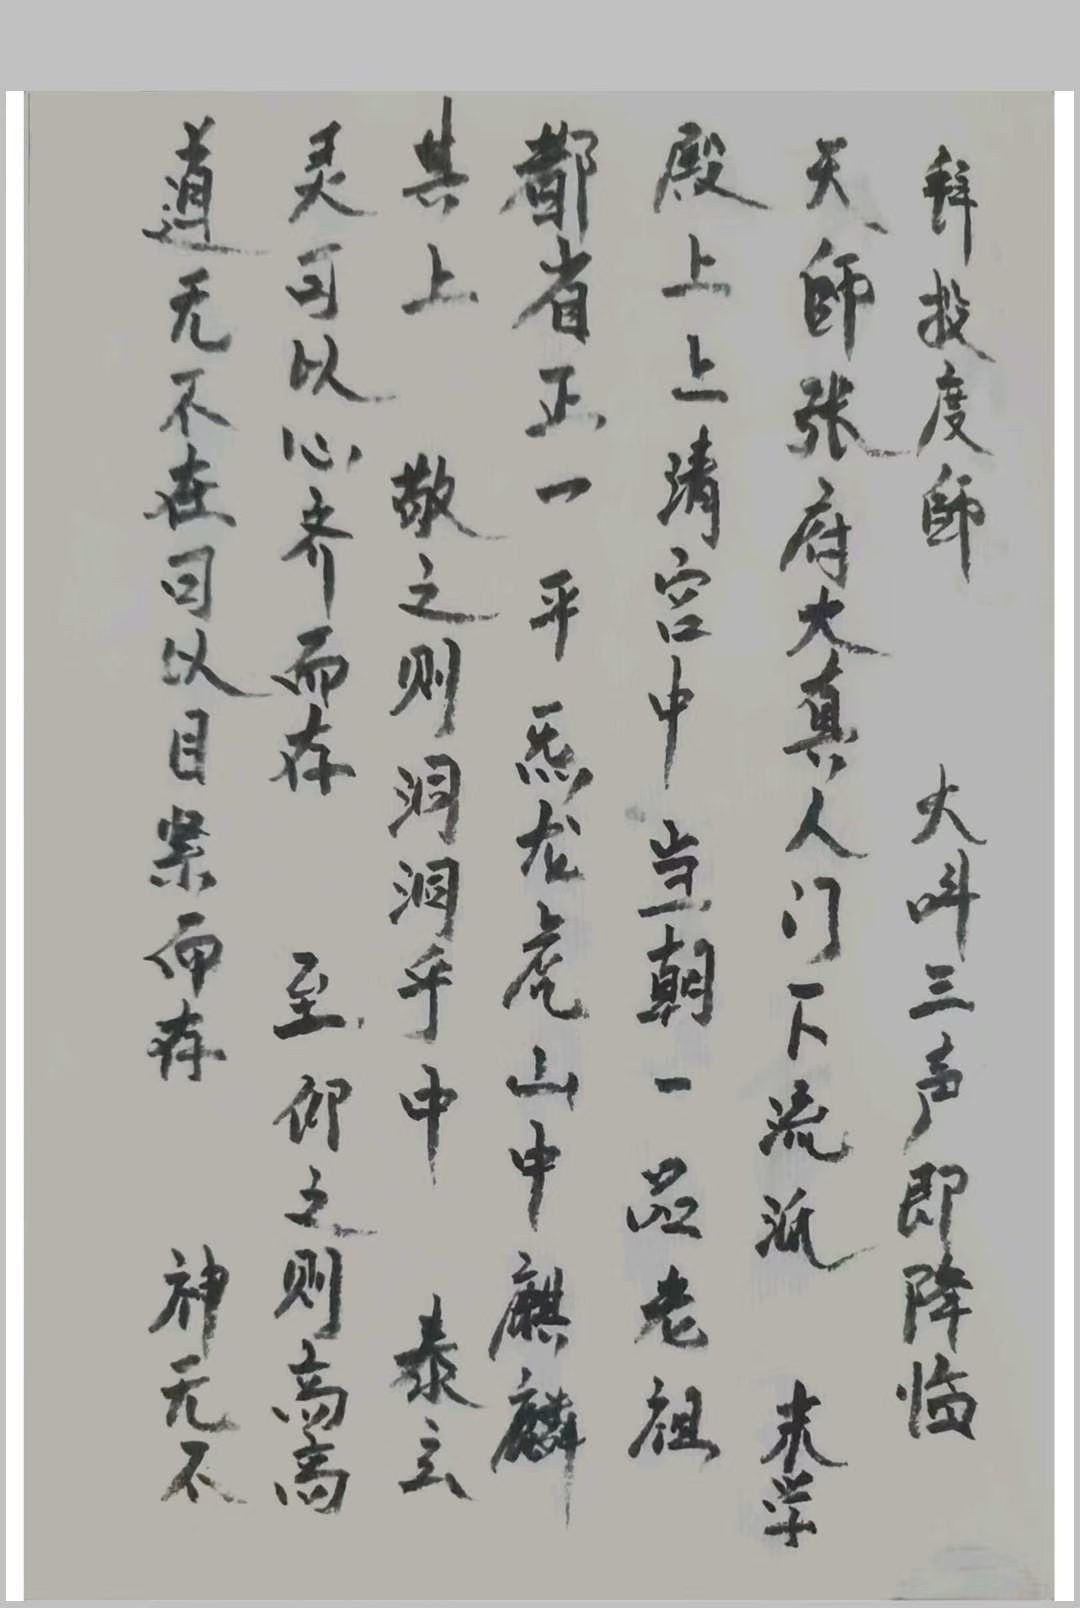 拜投度師 大叫三声即降临
天師张府大真人门下流派 末学
殿上上清宫中当朝一品老祖
都省正一平炁龙虎山中麒麟
其上 敬之则洞洞乎中 泰玄
灵司以心齐而存 至仰之则高高
道无不在司以目案而存 神无不